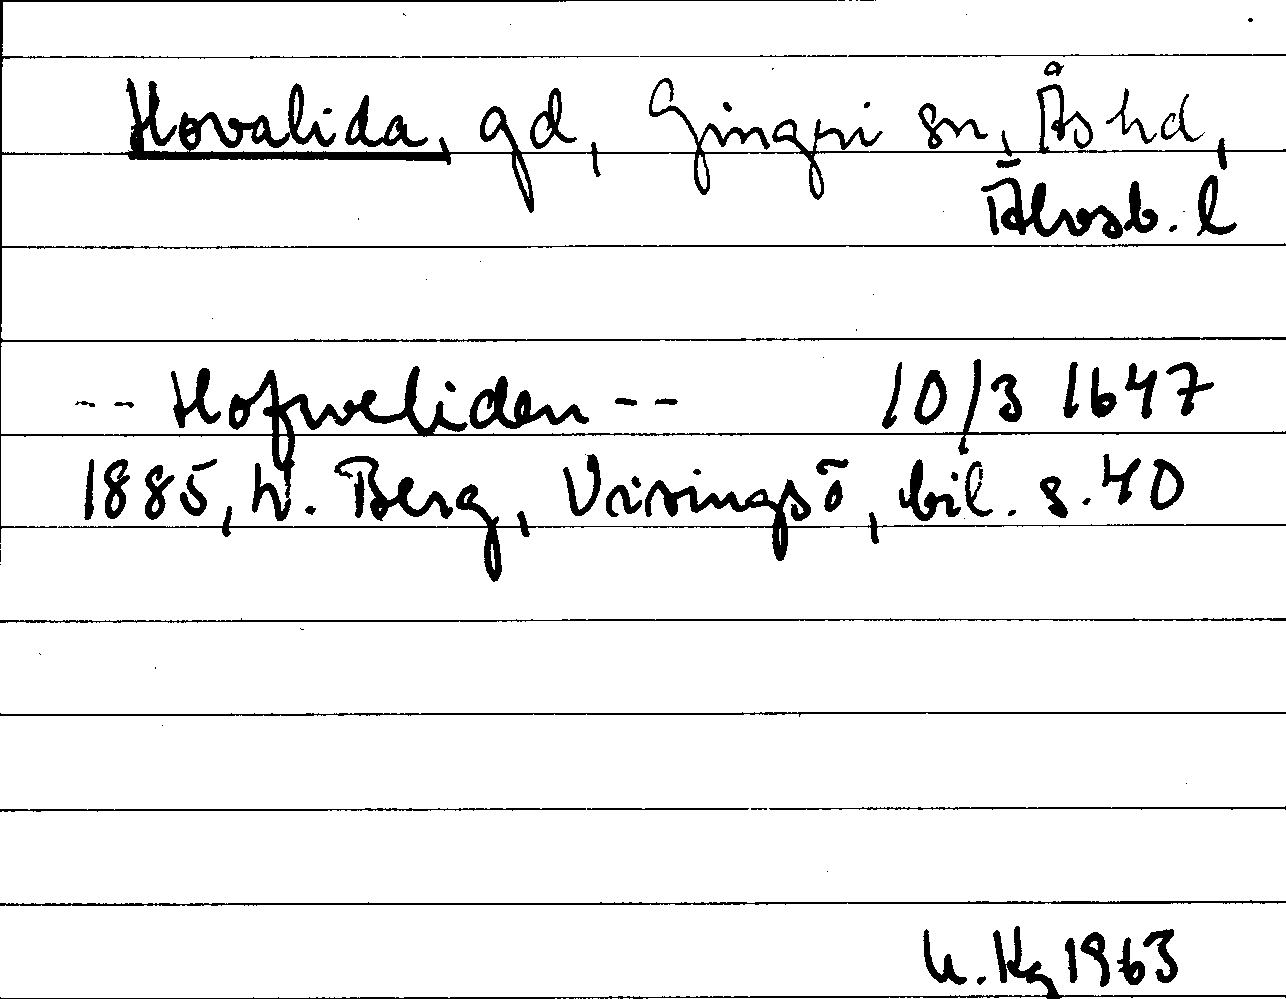 Hovalida, gd, Gingri sn, Ås hd,
Älvsb. l
-- Hofweliden -- 10/3 1647
1885, W. Berg, Visingsö, bil. s. 40
U. Kg 1963